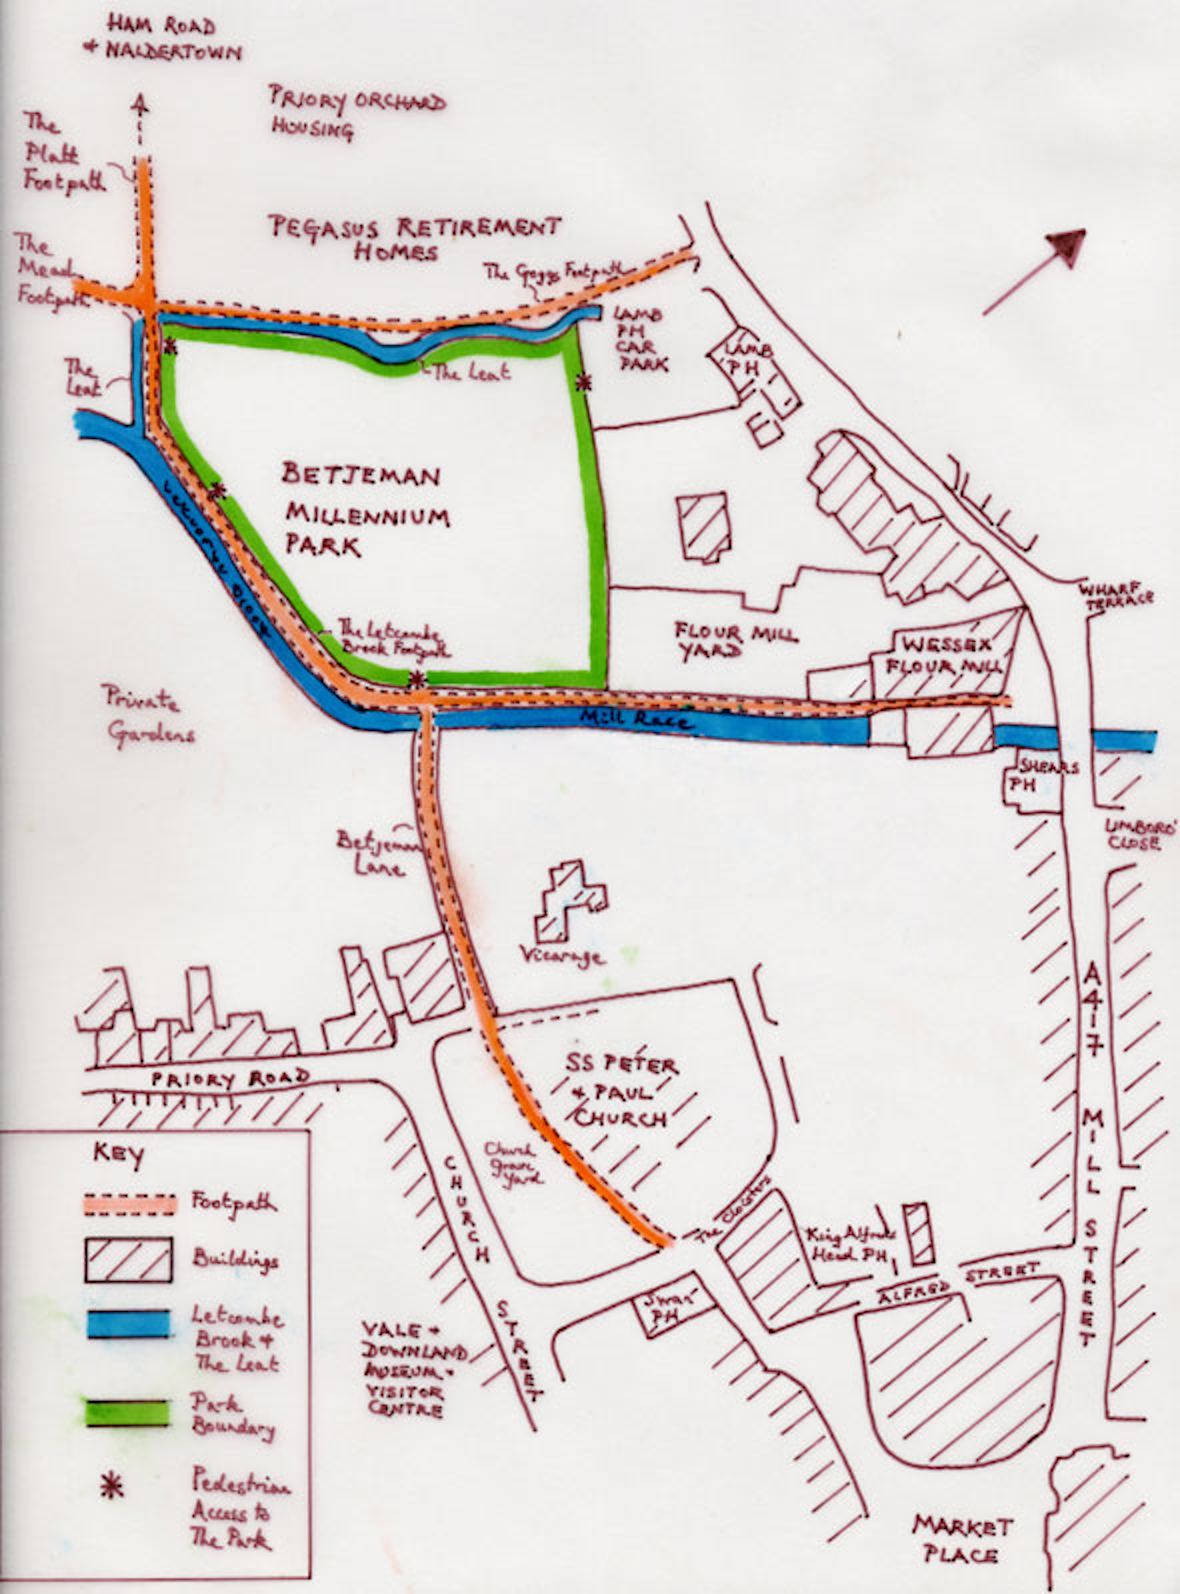 HAM ROAD
+ NALDERTOWN
PRIORY ORCHARD
HOUSING
The
Platt
Footpath
PEGASUS RETIREMENT
HOMES
The
Mead
Footpath
The Goggs Footpath
LAMB
PH
CAR
PARK
LAMB
PH
The
Leat
The Leat
BETJEMAN
MILLENNIUM
PARK
LETCOMBE BROOK
WHARF
TERRACE
The Letcombe
Brook Footpath
FLOUR MILL
YARD
WESSEX
FLOUR MILL
Private
Gardens
Mill Race
SHEARS
PH
LIMBORO'
CLOSE
Betjeman
Lane
Vicarage
A417 MILL STREET
SS PETER
+ PAUL
CHURCH
PRIORY ROAD
Church
Grave
Yard
CHURCH STREET
The Cloisters
King Alfreds
Head PH
ALFRED STREET
Swan
PH
VALE +
DOWNLAND
MUSEUM +
VISITOR
CENTRE
MARKET
PLACE
KEY
Footpath
Buildings
Letcombe
Brook +
The Leat
Park
Boundary
Pedestrian
Access to
The Park